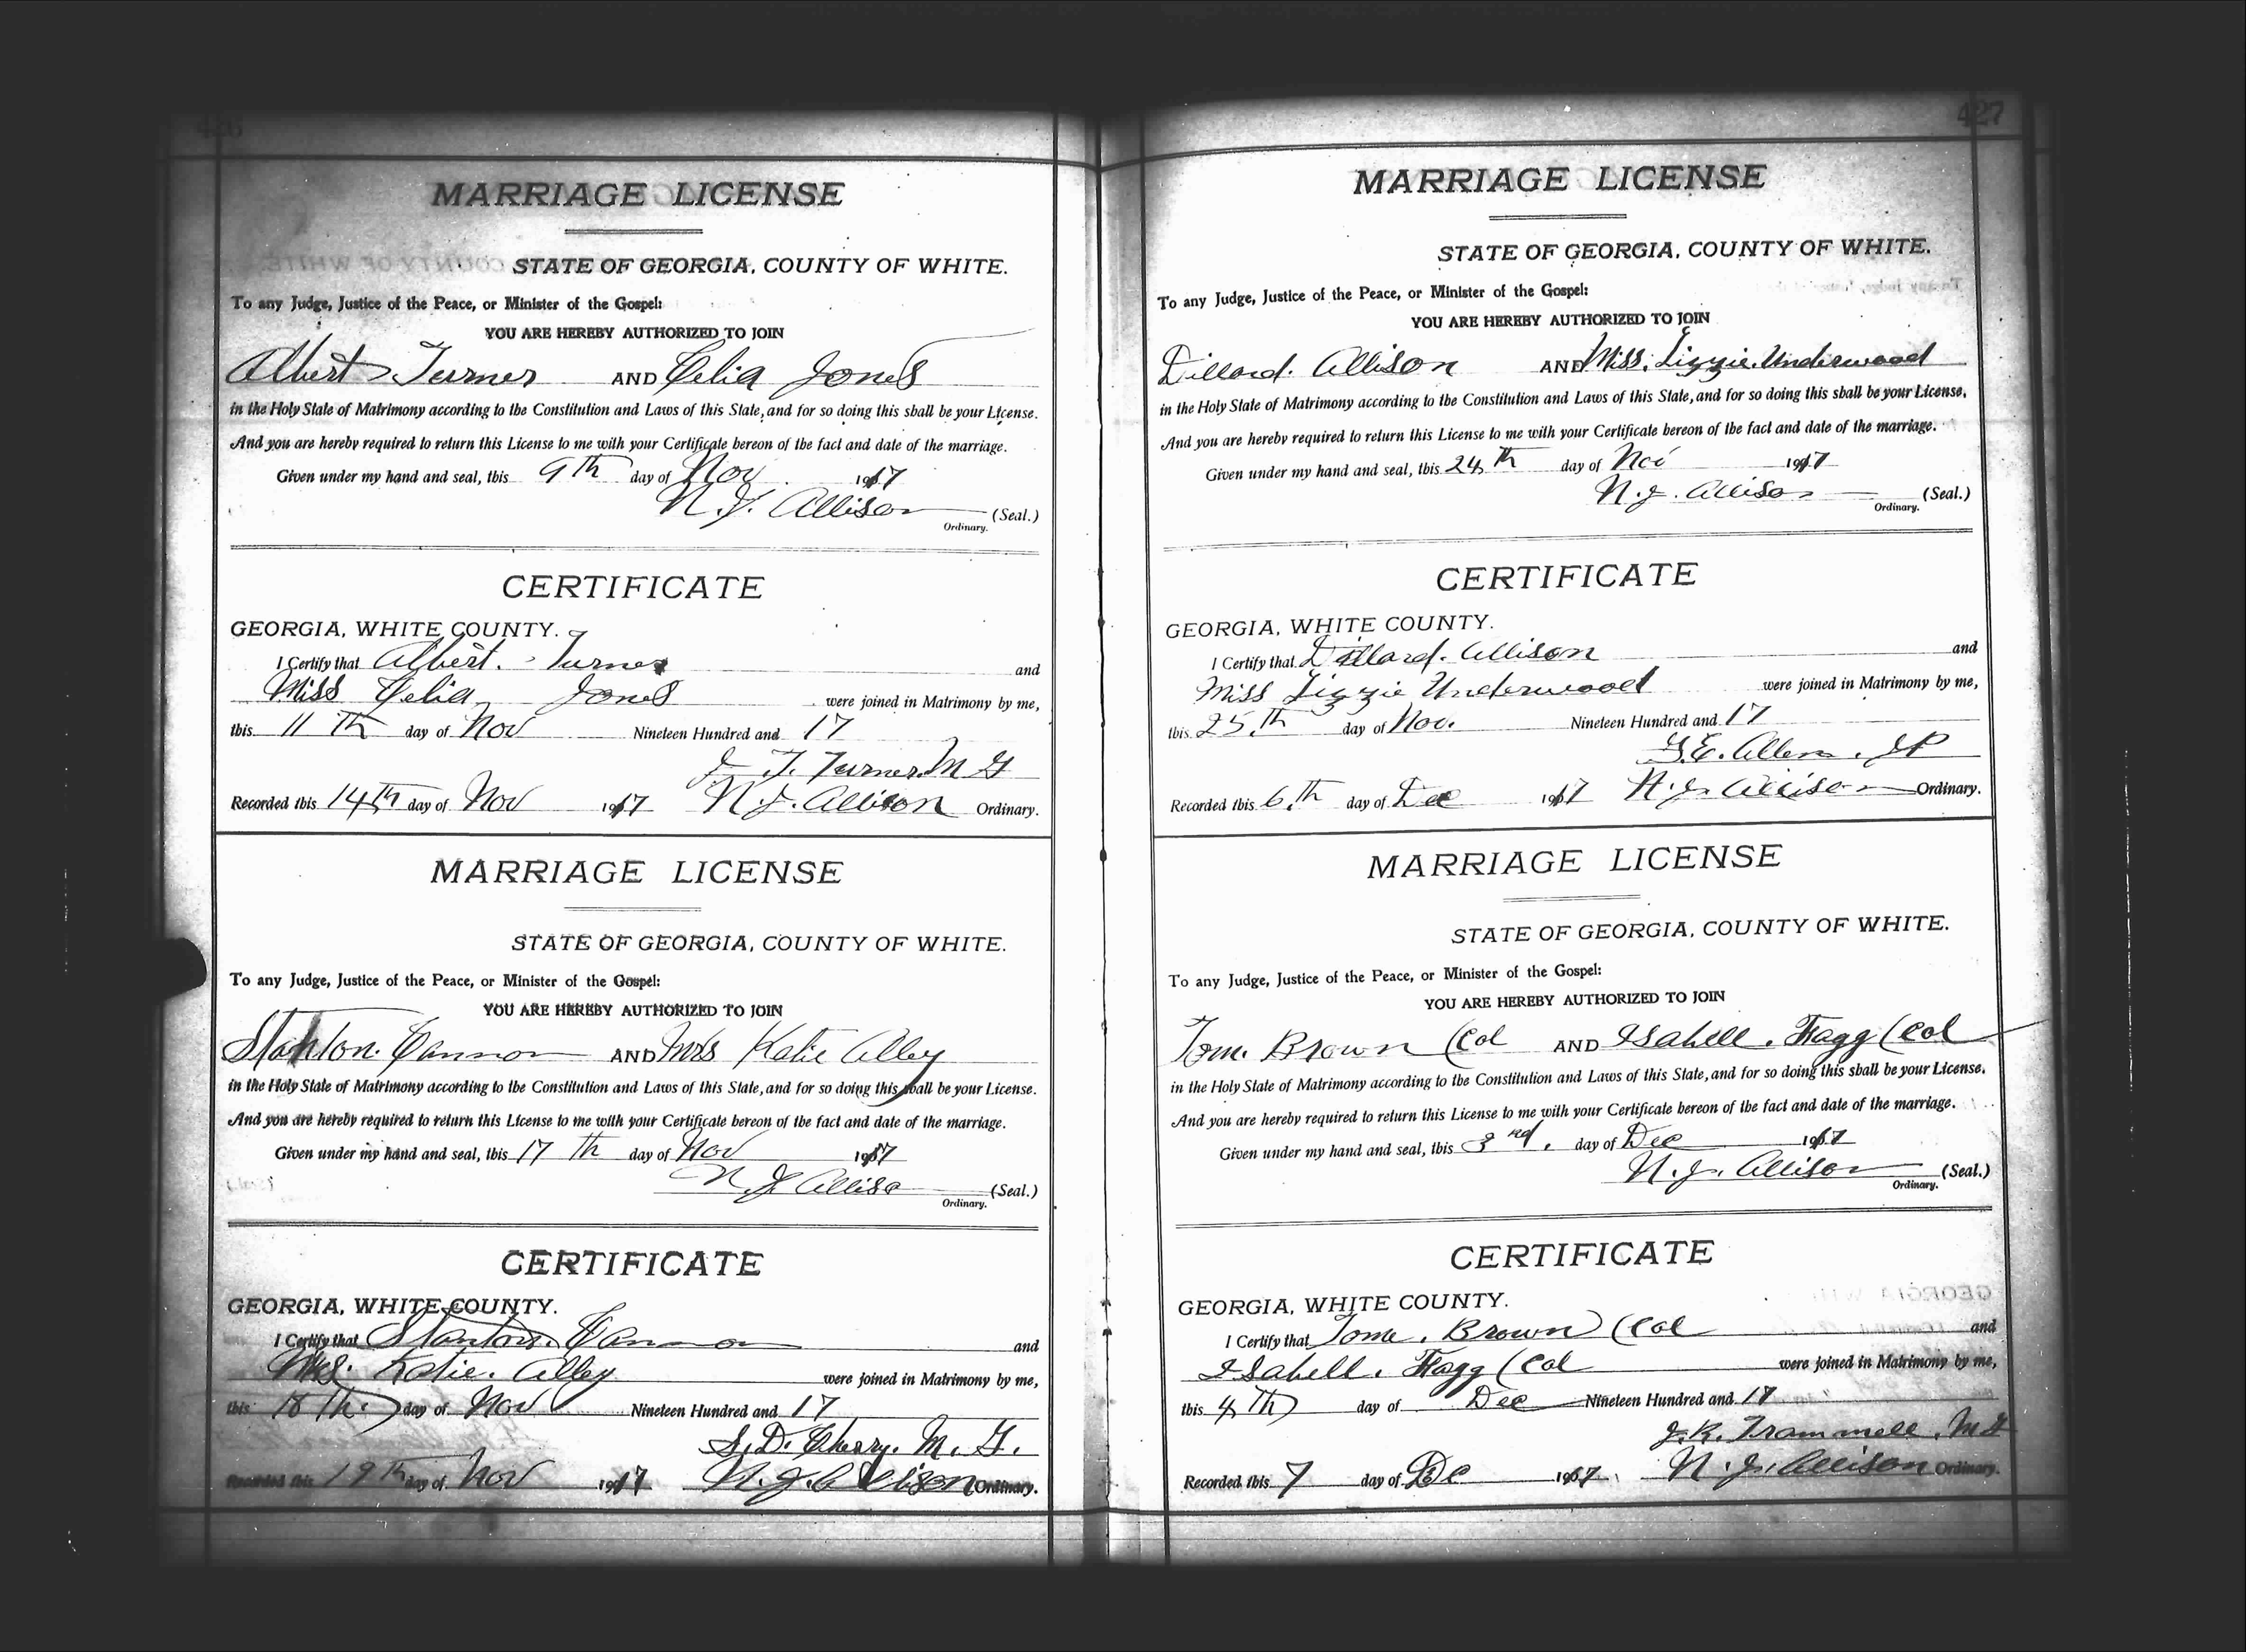 426
MARRIAGE LICENSE
STATE OF GEORGIA, COUNTY OF WHITE.
To any Judge, Justice of the Peace, or Minister of the Gospel:
YOU ARE HEREBY AUTHORIZED TO JOIN
Albert Turner AND Celia Jones
in the Holy State of Matrimony according to the Constitution and Laws of this State, and for so doing this shall be your License.
And you are hereby required to return this License to me with your Certificate hereon of the fact and date of the marriage.
Given under my hand and seal, this 9th day of Nov 1917
N. J. Allison (Seal.)
Ordinary.
CERTIFICATE
GEORGIA, WHITE COUNTY.
I Certify that Albert. Turner and
Miss Celia Jones were joined in Matrimony by me,
this 11th day of Nov Nineteen Hundred and 17
J. T. Turner. M G
Recorded this 14th day of Nov 1917 N. J. Allison Ordinary.
MARRIAGE LICENSE
STATE OF GEORGIA, COUNTY OF WHITE.
To any Judge, Justice of the Peace, or Minister of the Gospel:
YOU ARE HEREBY AUTHORIZED TO JOIN
Stanton. Cannon AND Mrs Katie Alley
in the Holy State of Matrimony according to the Constitution and Laws of this State, and for so doing this shall be your License.
And you are hereby required to return this License to me with your Certificate hereon of the fact and date of the marriage.
Given under my hand and seal, this 17th day of Nov 1917
N. J. Alliso (Seal.)
Ordinary.
CERTIFICATE
GEORGIA, WHITE COUNTY.
I Certify that Stanton. Cannon and
Mrs. Katie. Alley were joined in Matrimony by me,
this 18th. day of Nov Nineteen Hundred and 17
S. D. Cherry. M. G.
Recorded this 19th day of Nov 1917 N. J. Allison Ordinary.
427
MARRIAGE LICENSE
STATE OF GEORGIA, COUNTY OF WHITE.
To any Judge, Justice of the Peace, or Minister of the Gospel:
YOU ARE HEREBY AUTHORIZED TO JOIN
Dillard. Allison AND Miss. Lizzie. Underwood
in the Holy State of Matrimony according to the Constitution and Laws of this State, and for so doing this shall be your License.
And you are hereby required to return this License to me with your Certificate hereon of the fact and date of the marriage.
Given under my hand and seal, this 24th day of Nov 1917
N. J. Allison (Seal.)
Ordinary.
CERTIFICATE
GEORGIA, WHITE COUNTY.
I Certify that Dillard. Allison and
Miss Lizzie Underwood were joined in Matrimony by me,
this 25.th day of Nov. Nineteen Hundred and 17
G. E. Allen. JP
Recorded this 6.th day of Dec 1917 N. J. Allison Ordinary.
MARRIAGE LICENSE
STATE OF GEORGIA, COUNTY OF WHITE.
To any Judge, Justice of the Peace, or Minister of the Gospel:
YOU ARE HEREBY AUTHORIZED TO JOIN
Tom. Brown (Col AND Isabell. Flagg (Col
in the Holy State of Matrimony according to the Constitution and Laws of this State, and for so doing this shall be your License.
And you are hereby required to return this License to me with your Certificate hereon of the fact and date of the marriage.
Given under my hand and seal, this 3rd. day of Dec 1917
N. J. Allison (Seal.)
Ordinary.
CERTIFICATE
GEORGIA, WHITE COUNTY.
I Certify that Tome. Brown (Col and
Isabell. Flagg (Col were joined in Matrimony by me,
this 4th day of Dec Nineteen Hundred and 17
J. R. Trammell. M G
Recorded this 7 day of Dec 1917 N. J. Allison Ordinary.